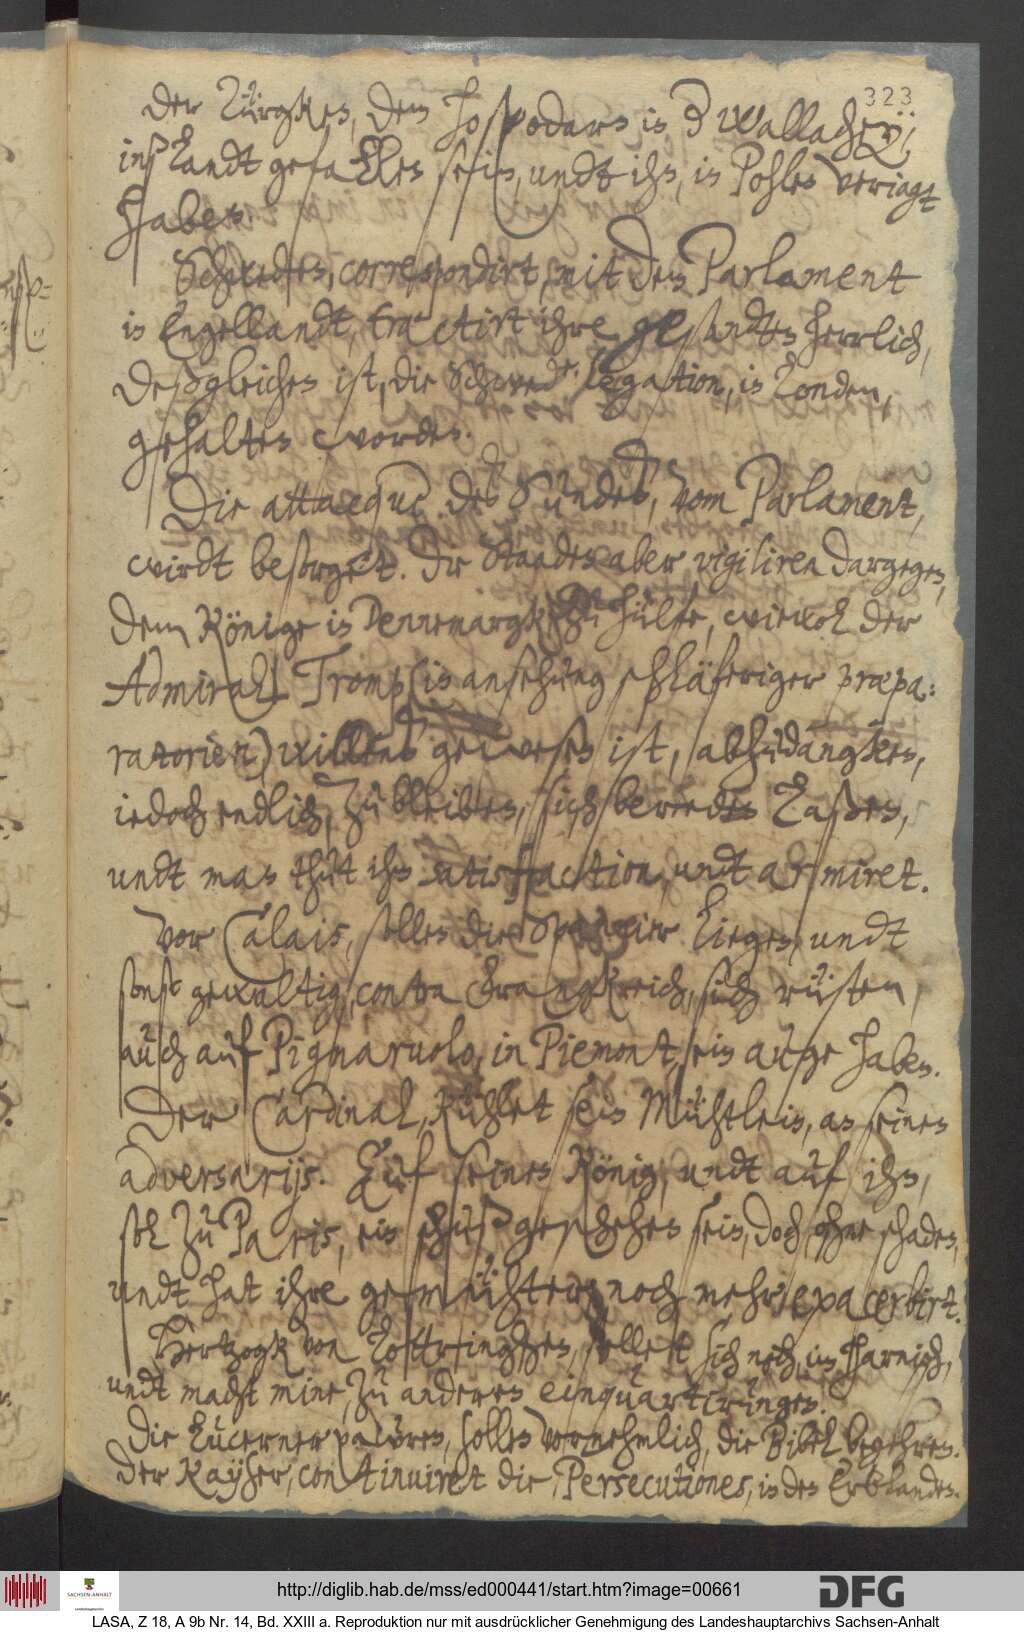 323
der Türgken, dem Hospodarn in d Wallachey,
inß Landt gefallen sein, undt ihn, in Pohlen verjagt
haben.
Schweden, correspondirt, mit dem Parlament
in Engellandt, tractirt ihre gesandten herrlich,
deßgleichen ist, die Schwed: legation, in Londen,
gehalten worden.
Die attacque des Sundes, vom Parlament,
wirdt besorget. Die Staaden aber vigiliren dargegen,
dem Könige in Dennemargk zu hülfe, wiewol der
Admiral Tromp (in ansehung schläferiger præpa:
ratorien) willens gewesen ist, abzudangken,
iedoch endlich, zu bleiben, sich bereden laßen,
undt man thut ihm satisfaction, undt armiret.
Vor Calais, sollen die Spannier liegen, undt
sonst gewaltig, contra Frangkreich, sich rüsten,
auch auf Pignarvolo, in Piemont, ein auge haben.
Der Cardinal, kühlet sein Mühtlein, an seinen
adversarijs. Auf seinen König, undt auf ihn,
sol zu Paris, ein schuß geschehen sein, doch ohne schaden,
undt hat ihre gemühter, noch mehr exacerbirt.
Hertzogk von Lottringen, stellet sich noch, in harnisch,
undt macht mine, zu anderen einquartirungen.
Die Lucerner pawren, sollen vornehmlich, die Bibel begehren.
Der Kayser, continuiret die Persecutiones, in den Erblanden.
SACHSEN-ANHALT
http://diglib.hab.de/mss/ed000441/start.htm?image=00661
DFG
LASA, Z 18, A 9b Nr. 14, Bd. XXIII a. Reproduktion nur mit ausdrücklicher Genehmigung des Landeshauptarchivs Sachsen-Anhalt